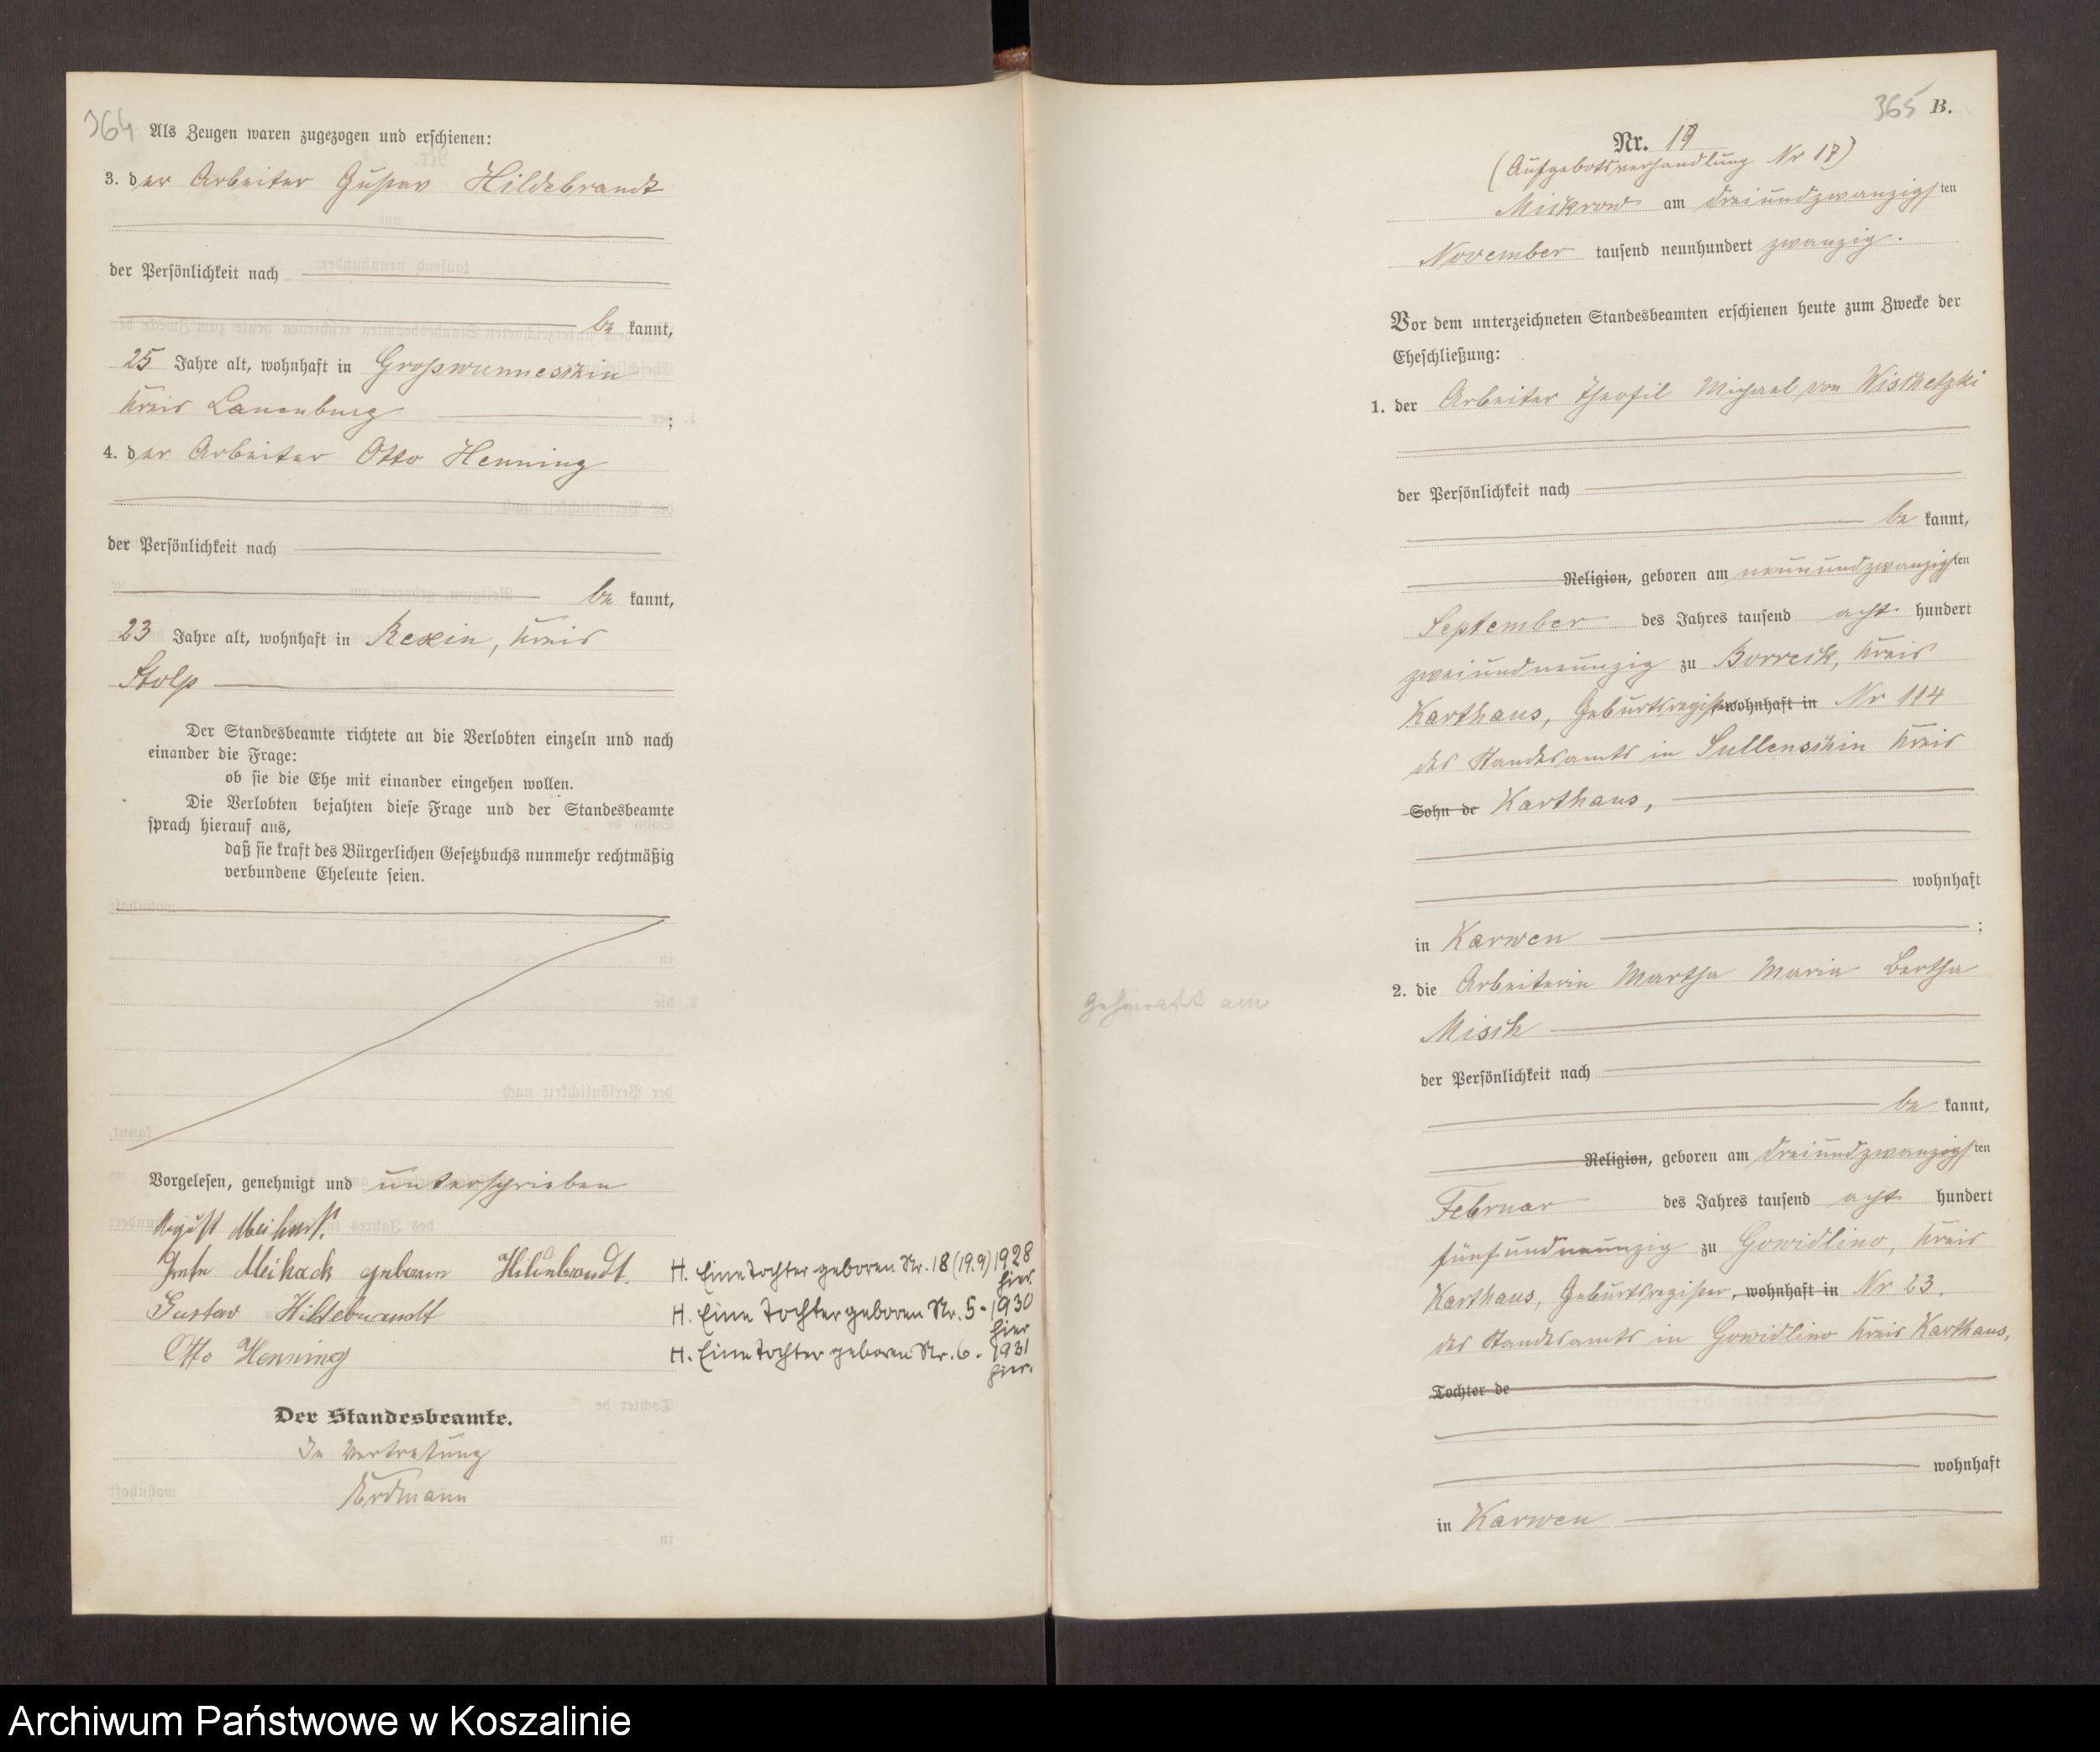 364
Als Zeugen waren zugezogen und erschienen:
3. der Arbeiter Gustav Hildebrandt
der Persönlichkeit nach
be kannt,
25 Jahre alt, wohnhaft in Großwunneschin
Kreis Lauenburg ;
4. der Arbeiter Otto Henning
der Persönlichkeit nach
be kannt,
23 Jahre alt, wohnhaft in Rexin, Kreis
Stolp
Der Standesbeamte richtete an die Verlobten einzeln und nach
einander die Frage:
ob sie die Ehe mit einander eingehen wollen.
Die Verlobten bejahten diese Frage und der Standesbeamte
sprach hierauf aus,
daß sie kraft des Bürgerlichen Gesetzbuchs nunmehr rechtmäßig
verbundene Eheleute seien.
Vorgelesen, genehmigt und unterschrieben
August
geboren
Gustav Hildebrandt
Otto Henning
H. Eine Tochter geboren Nr. 18 (19.9) 1928
hier.
H. Eine Tochter geboren Nr. 5 - 1930
hier
H. Eine Tochter geboren Nr. 6 - 1931
hier.
Der Standesbeamte.
In Vertretung
Erdmann
365 B.
Nr. 19
(Aufgebotsverhandlung Nr 17)
Mickrow am dreiundzwanzigsten
November tausend neunhundert zwanzig.
Vor dem unterzeichneten Standesbeamten erschienen heute zum Zwecke der
Eheschließung:
1. der Arbeiter Theofil Michael von Wischetzki
der Persönlichkeit nach
be kannt,
Religion, geboren am neunundzwanzigsten
September des Jahres tausend acht hundert
zweiundneunzig zu Borreck, Kreis
Karthaus, Geburtsregister wohnhaft in Nr 114
des Standesamts in Sullenschin Kreis
Sohn de Karthaus,
wohnhaft
in Karwen ;
2. die Arbeiterin Martha Maria Bertha
Misch
der Persönlichkeit nach
be kannt,
Religion, geboren am dreiundzwanzigsten
Februar des Jahres tausend acht hundert
fünfundneunzig zu Gowidlino, Kreis
Karthaus, Geburtsregister, wohnhaft in Nr 23.
des Standesamts in Gowidlino Kreis Karthaus,
Tochter de
wohnhaft
in Karwen
Geheiratet am
Archiwum Państwowe w Koszalinie